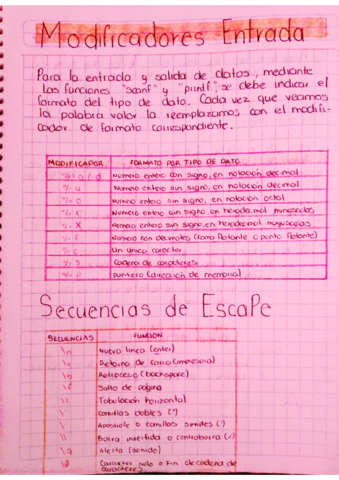 Modificadores Entrada
Para la entrada y salida de datos, mediante
las funciones "scanf" y "printf", se debe indicar el
formato del tipo de dato. Cada vez que veamos
la palabra valor la reemplazamos con el modifi-
cador de formato correspondiente.
MODIFICADOR FORMATO POR TIPO DE DATO
Numero entero con signo, en notación decimal
%u Numero entero sin signo, en notación decimal
%o Numero entero sin signo, en notación octal
%x Numero entero sin signo, en hexadecimal minusculas
%X Numero entero sin signo, en hexadecimal mayusculas
%f Numero con decimales (coma flotante o punto flotante)
%c Un unico caracter
%s Cadena de caracteres
%p Puntero (dirección de memoria)
Secuencias de Escape
SECUENCIAS FUNCION
\n Nueva linea (enter)
Retorno de carro
\b Retroceso (backspace)
\f Salto de página
Tabulación horizontal
Comillas dobles (")
Apostrofe o comillas simples (')
Barra invertida o contrabarra
\a Alerta (sonido)
\0 Caracter nulo o Fin de cadena de
caracteres.